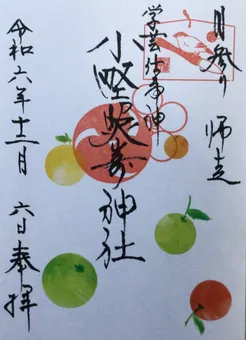 月参り 師走
学芸仕事神
小野照崎神社
令和六年十二月 六日奉拝